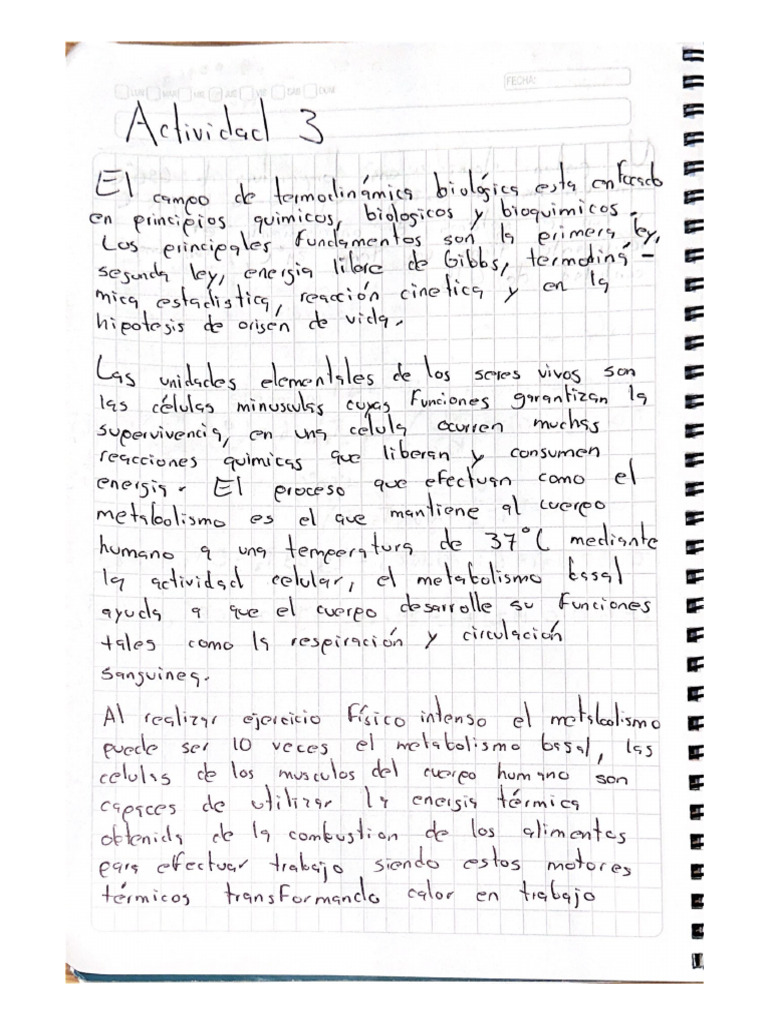 FECHA:
Actividad 3
El campo de termodinámica biológica esta enfocado
en principios quimicos, biologicos y bioquimicos.
Los principales fundamentos son la primera ley,
segunda ley, energia libre de Gibbs, termodiná-
mica estadistica, reacción cinetica y en la
hipotesis de origen de vida.
Las unidades elementales de los seres vivos son
las células minusculas cuyas funciones garantizan la
supervivencia, en una celula ocurren muchas
reacciones quimicas que liberan y consumen
energia. El proceso que efectuan como el
metabolismo es el que mantiene al cuerpo
humano a una temperatura de 37°C mediante
la actividad celular, el metabolismo basal
ayuda a que el cuerpo desarrolle su funciones
tales como la respiración y circulación
sanguinea.
Al realizar ejercicio físico intenso el metabolismo
puede ser 10 veces el metabolismo basal, las
celulas de los musculos del cuerpo humano son
capaces de utilizar la energia térmica
obtenida de la combustion de los alimentos
para efectuar trabajo siendo estos motores
térmicos transformando calor en trabajo